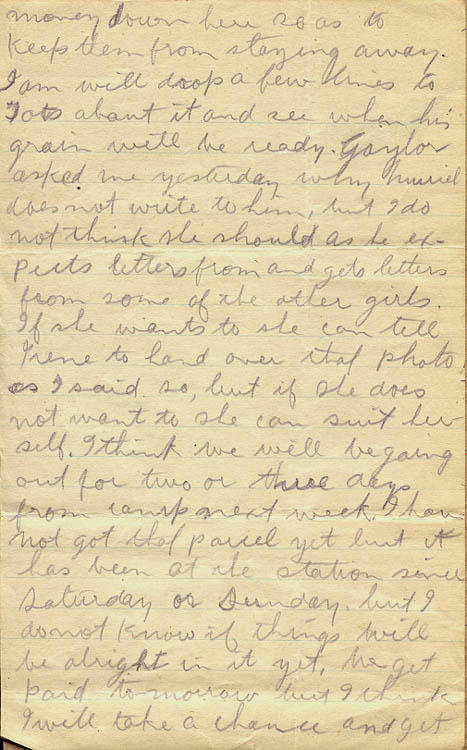 money down here so as to
keep them from staying away.
I am will drop a few lines to
about it and see when his
grain will be ready. Gaylor
asked me yesterday why Muriel
does not write to him, but I do
not think she should as he ex-
pects letters from and gets letters
from some of the other girls.
If she wants to she can tell
Irene to hand over that photo
as I said so, but if she does
not want to she can suit her
self. I think we will be going
out for two or three days
from camp next week. I have
not got that parcel yet but it
has been at the station since
Saturday or Sunday. but I
do not know if things will
be alright in it yet. We get
paid to-morrow but I think
I will take a chance and get